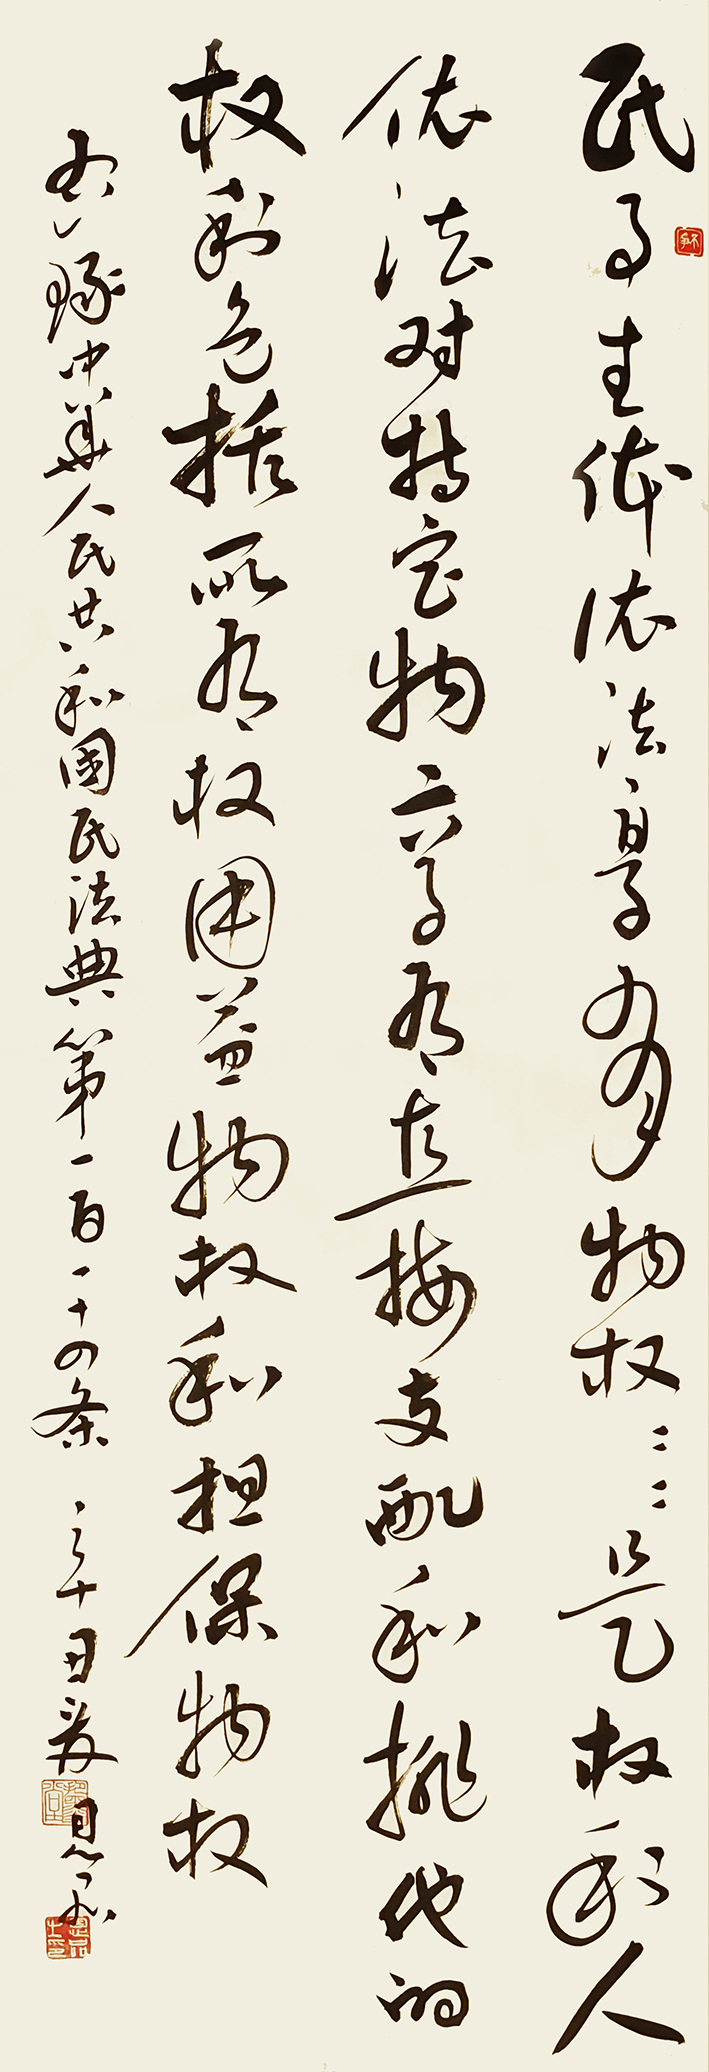 民事主体依法享有物权〻〻是权利人
依法对特定物享有直接支配和排他的
权利包括所有权用益物权和担保物权
中華人民共和國民法典第一百一十四条